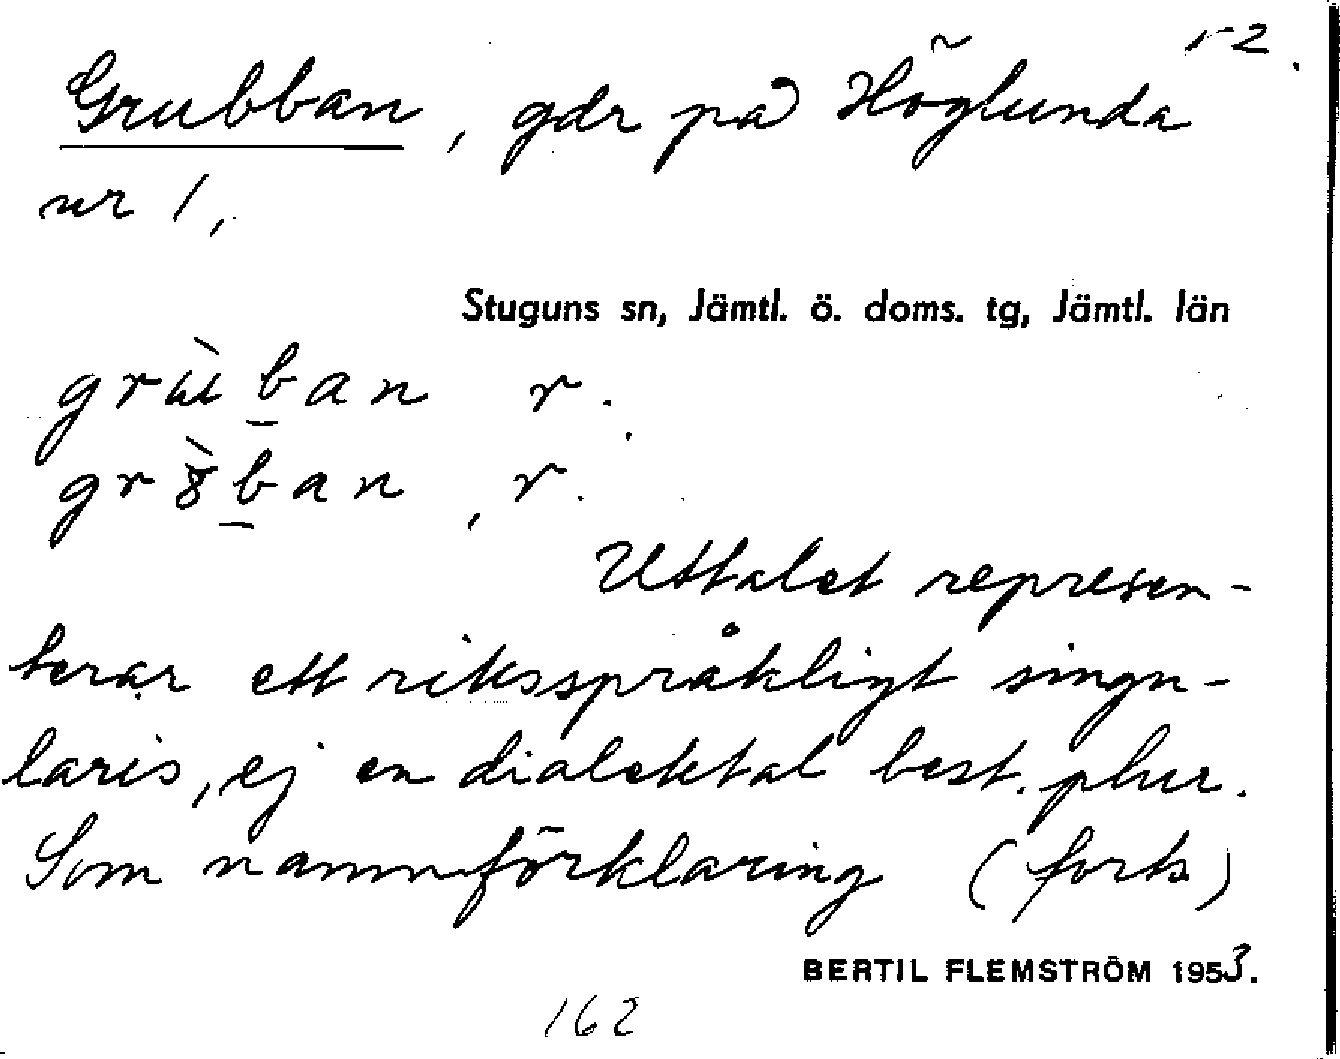 1-2.
Grubban, gdr på Höglunda
nr 1,
Stuguns sn, Jämtl. ö. doms. tg, Jämtl. län
grùb̲an r.
gr8̀b̲an, r.
Uttalet represen-
terar ett riksspråkligt singu-
laris, ej en dialektal best. plur.
Som namnförklaring (forts)
BERTIL FLEMSTRÖM 1953.
162